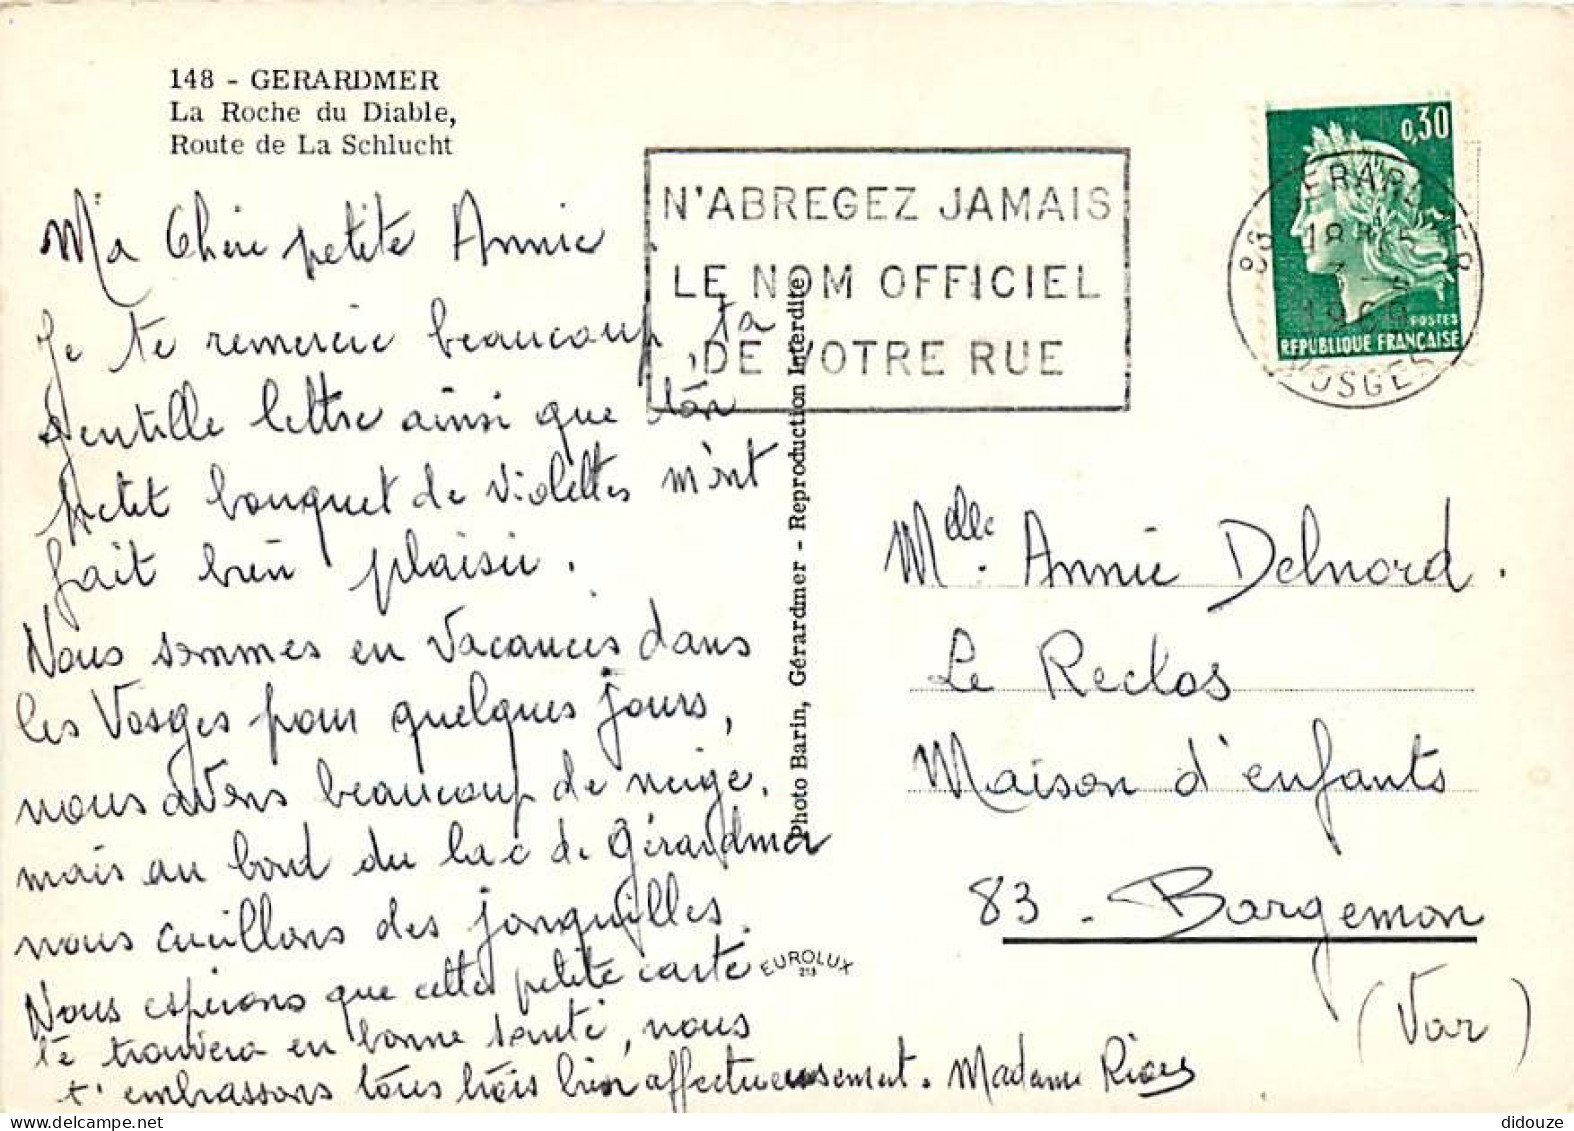 148 - GERARDMER
La Roche du Diable,
Route de La Schlucht
N'ABREGEZ JAMAIS
LE NOM OFFICIEL
DE VOTRE RUE
0,30
POSTES
REPUBLIQUE FRANÇAISE
88 GERARDMER
18H15
1969
VOSGES
Ma Chère petite Annie
Je te remercie beaucoup, ta
gentille lettre ainsi que ton
petit bouquet de violettes m'ont
fait bien plaisir.
Nous sommes en vacances dans
les Vosges pour quelques jours,
nous avons beaucoup de neige,
mais au bord du lac de Gérardmer
nous cueillons des jonquilles.
Nous espérons que cette petite carte
te trouvera en bonne santé, nous
t'embrassons tous trois bien affectueusement. Madame
Photo Barin, Gérardmer - Reproduction Interdite
EUROLUX
Melle. Annie Delnord.
Le Reclos
Maison d'enfants
83 - Bargemon
(Var)
didouze